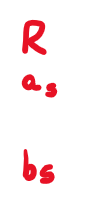 R
as
bs